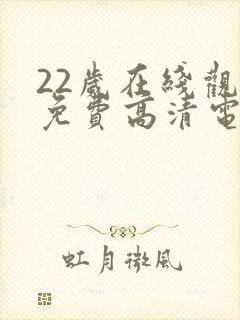 22歲在綫觀
免費高清電
虹月微風